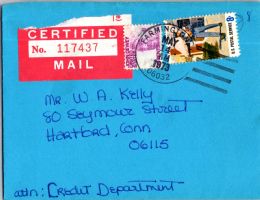 CERTIFIED
No. 117437
MAIL
FARMINGTON
1973
06032
8¢
U.S. POSTAL SERVICE
Mr. W. A. Kelly
80 Seymour Street
Hartford, Conn
06115
attn: Credit Department